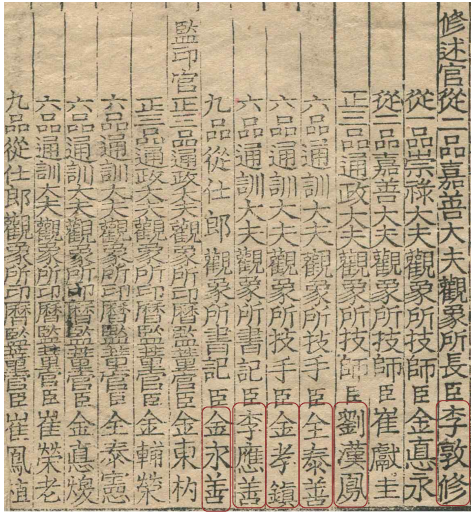 修述官從二品嘉善大夫觀象所長臣李敦修
從一品崇祿大夫觀象所技師臣金悳永
從二品嘉善大夫觀象所技師臣崔獻圭
正三品通政大夫觀象所技師臣劉漢鳳
六品通訓大夫觀象所技手臣全泰善
六品通訓大夫觀象所技手臣金孝鎭
六品通訓大夫觀象所書記臣李應善
九品從仕郎觀象所書記臣金永善
監印官正三品通政大夫觀象所印曆監董官臣金東杓
正三品通政大夫觀象所印曆監董官臣金輔榮
六品通訓大夫觀象所印曆監董官臣全泰憲
六品通訓大夫觀象所印曆監董官臣金悳
六品通訓大夫觀象所印曆監董官臣崔榮老
九品從仕郎觀象所印曆監董官臣崔鳳植